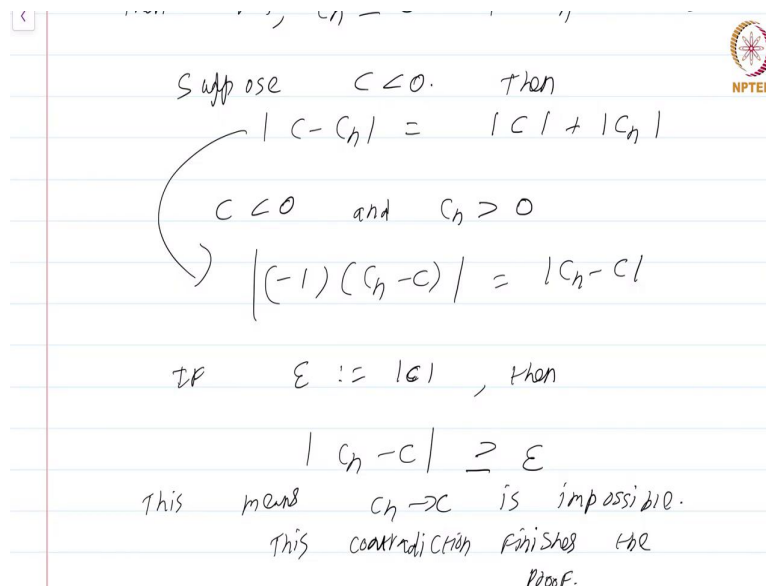 Suppose C<0. Then
NPTEL
|C-Cn| = |C| + |Cn|
C<0 and Cn > 0
|(-1)(Cn-C)| = |Cn-C|
IF ε := |C|, then
|Cn-C| ≥ ε
This means Cn→C is impossible.
This contradiction finishes the
Proof.